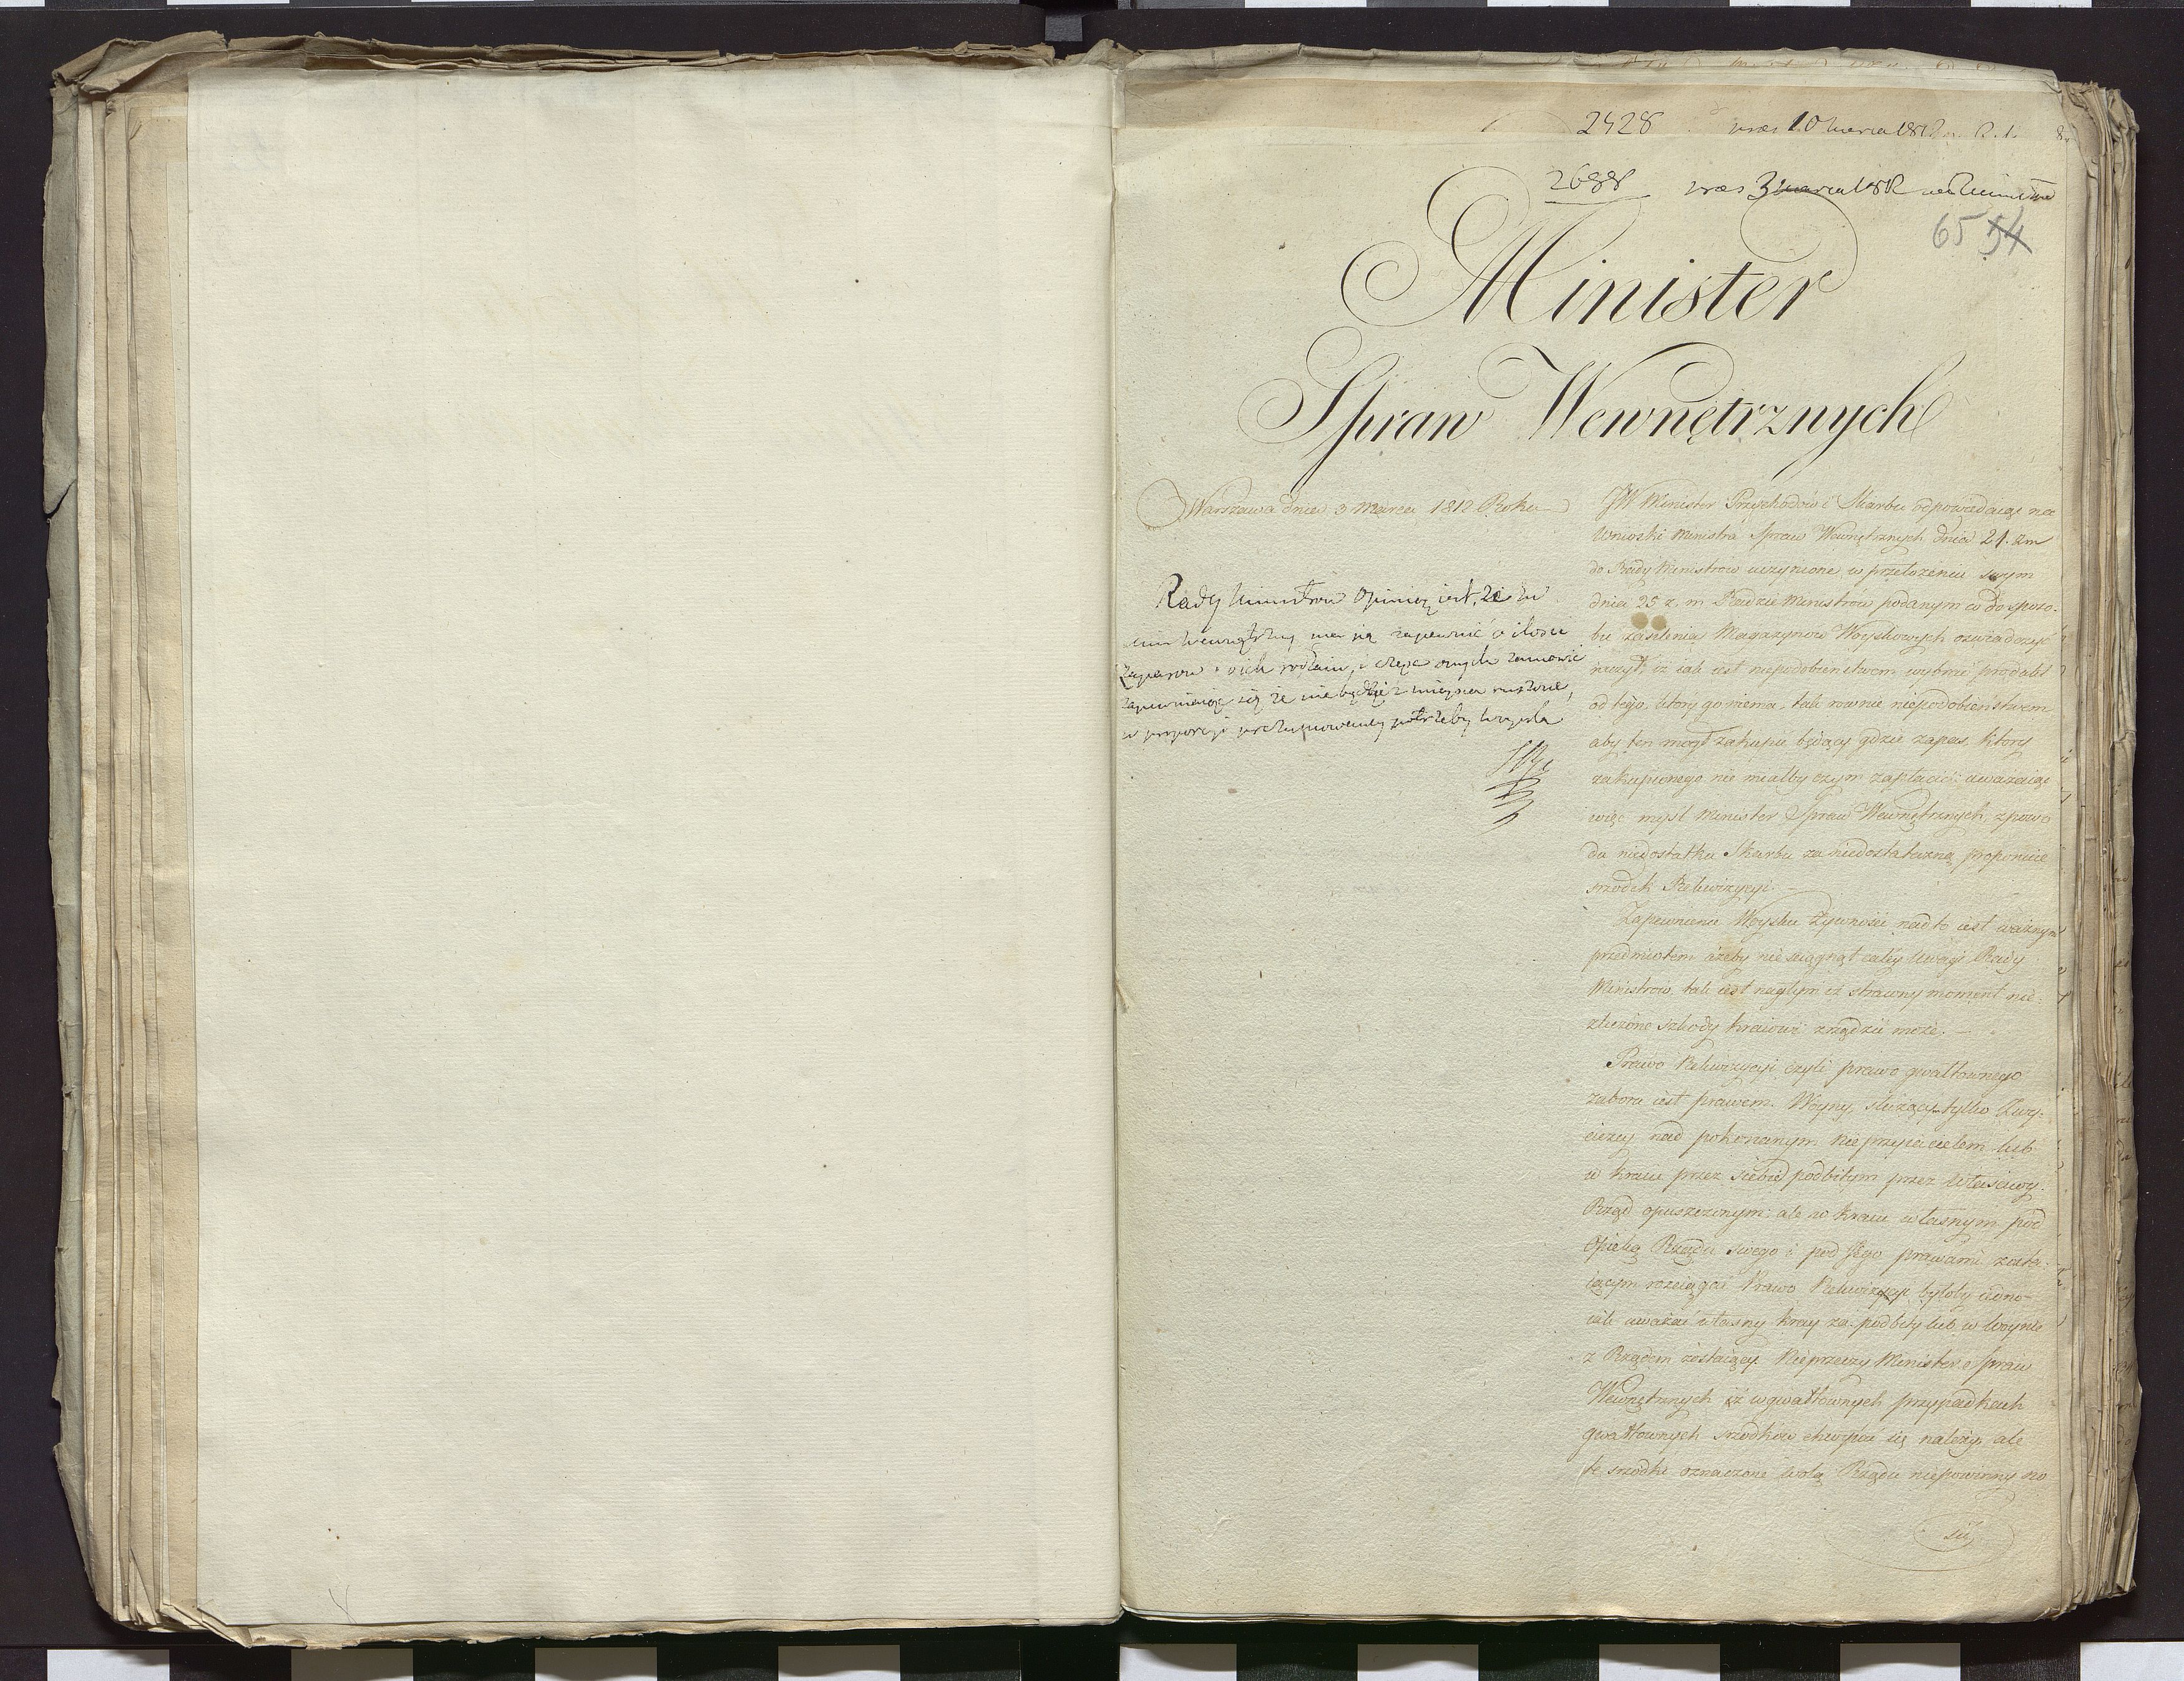 2428 præs 10 marca 1812
2688 præs 3 marca 1812
65 54
Minister
Spraw Wewnętrznych
Warszawa dnia 3 Marca 1812 Roku
Rady Ministrow Opinią iest, że
ma się zapewnić o ilości
zapasow o ich i onych zamowić
zapewniaiąc się że nie będzie z mieysca ruszone,
w proporcyi potrzeby woyska
JW Minister Przychodów i Skarbu odpowiedaiąc na
Wnioski Ministra Spraw Wewnętrznych dnia 21. zm
do Rady Ministrow uczynione, w przełożeniu swym
dnia 25 z. m. Radzie Ministrów podanym co do sposo-
bu zasilenia Magazynow Woyskowych oświadczyć
raczył, iż iak iest niepodobieństwem wybrać podatek
od tego, który go niema, tak rownie niepodobieństwem
aby ten mógł zakupić będący gdzie zapas, który
zakupionego nie miałby czym zapłacić: uważaiąc
więc myśl Ministra Spraw Wewnętrznych, z powo
du niedostatku Skarbu za niedostateczną, proponuie
srzodek Rekwizycyi. —
Zapewnienie Woysku Żywności nadto iest ważnym
przedmiotem ażeby nie sciągnął całey uwagi Rady
Ministrów, tak iest nagłym iż stracony moment nie-
zliczone szkody kraiowi zrządzić może. —
Prawo Rekwizycyi czyli prawo gwałtownego
zaboru iest prawem Woyny, służącym tylko Zwy-
cięzcy nad pokonanym Nieprzyiacielem lub
w kraiu przez siebie podbitym przez właściwy
Rząd opuszczonym; ale w kraiu własnym pod
Opieką Rządu swego i pod Jego prawami zosta-
iącym rozciągać Prawo Rekwizycyi byłoby iedno-
iak uważać własny kray za podbity lub w Woynie
z Rządem zostaiący. Nieprzeczy Minister Spraw
Wewnętrznych iż w gwałtownych przypadkach
gwałtownych srzodków chwytać się należy, ale
te srzodki oznaczone wolą Rządu niepowinny no
sić